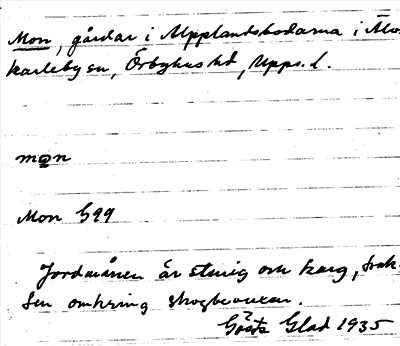 Mon, gårdar i Upplandsbodarna i Älv
karleby sn, Örbyhus hd, Upps. l.
mon
Mon G99
Jordmånen är stenig och karg, trak-
ten omkring skogbevuxen.
Gösta Glad 1935